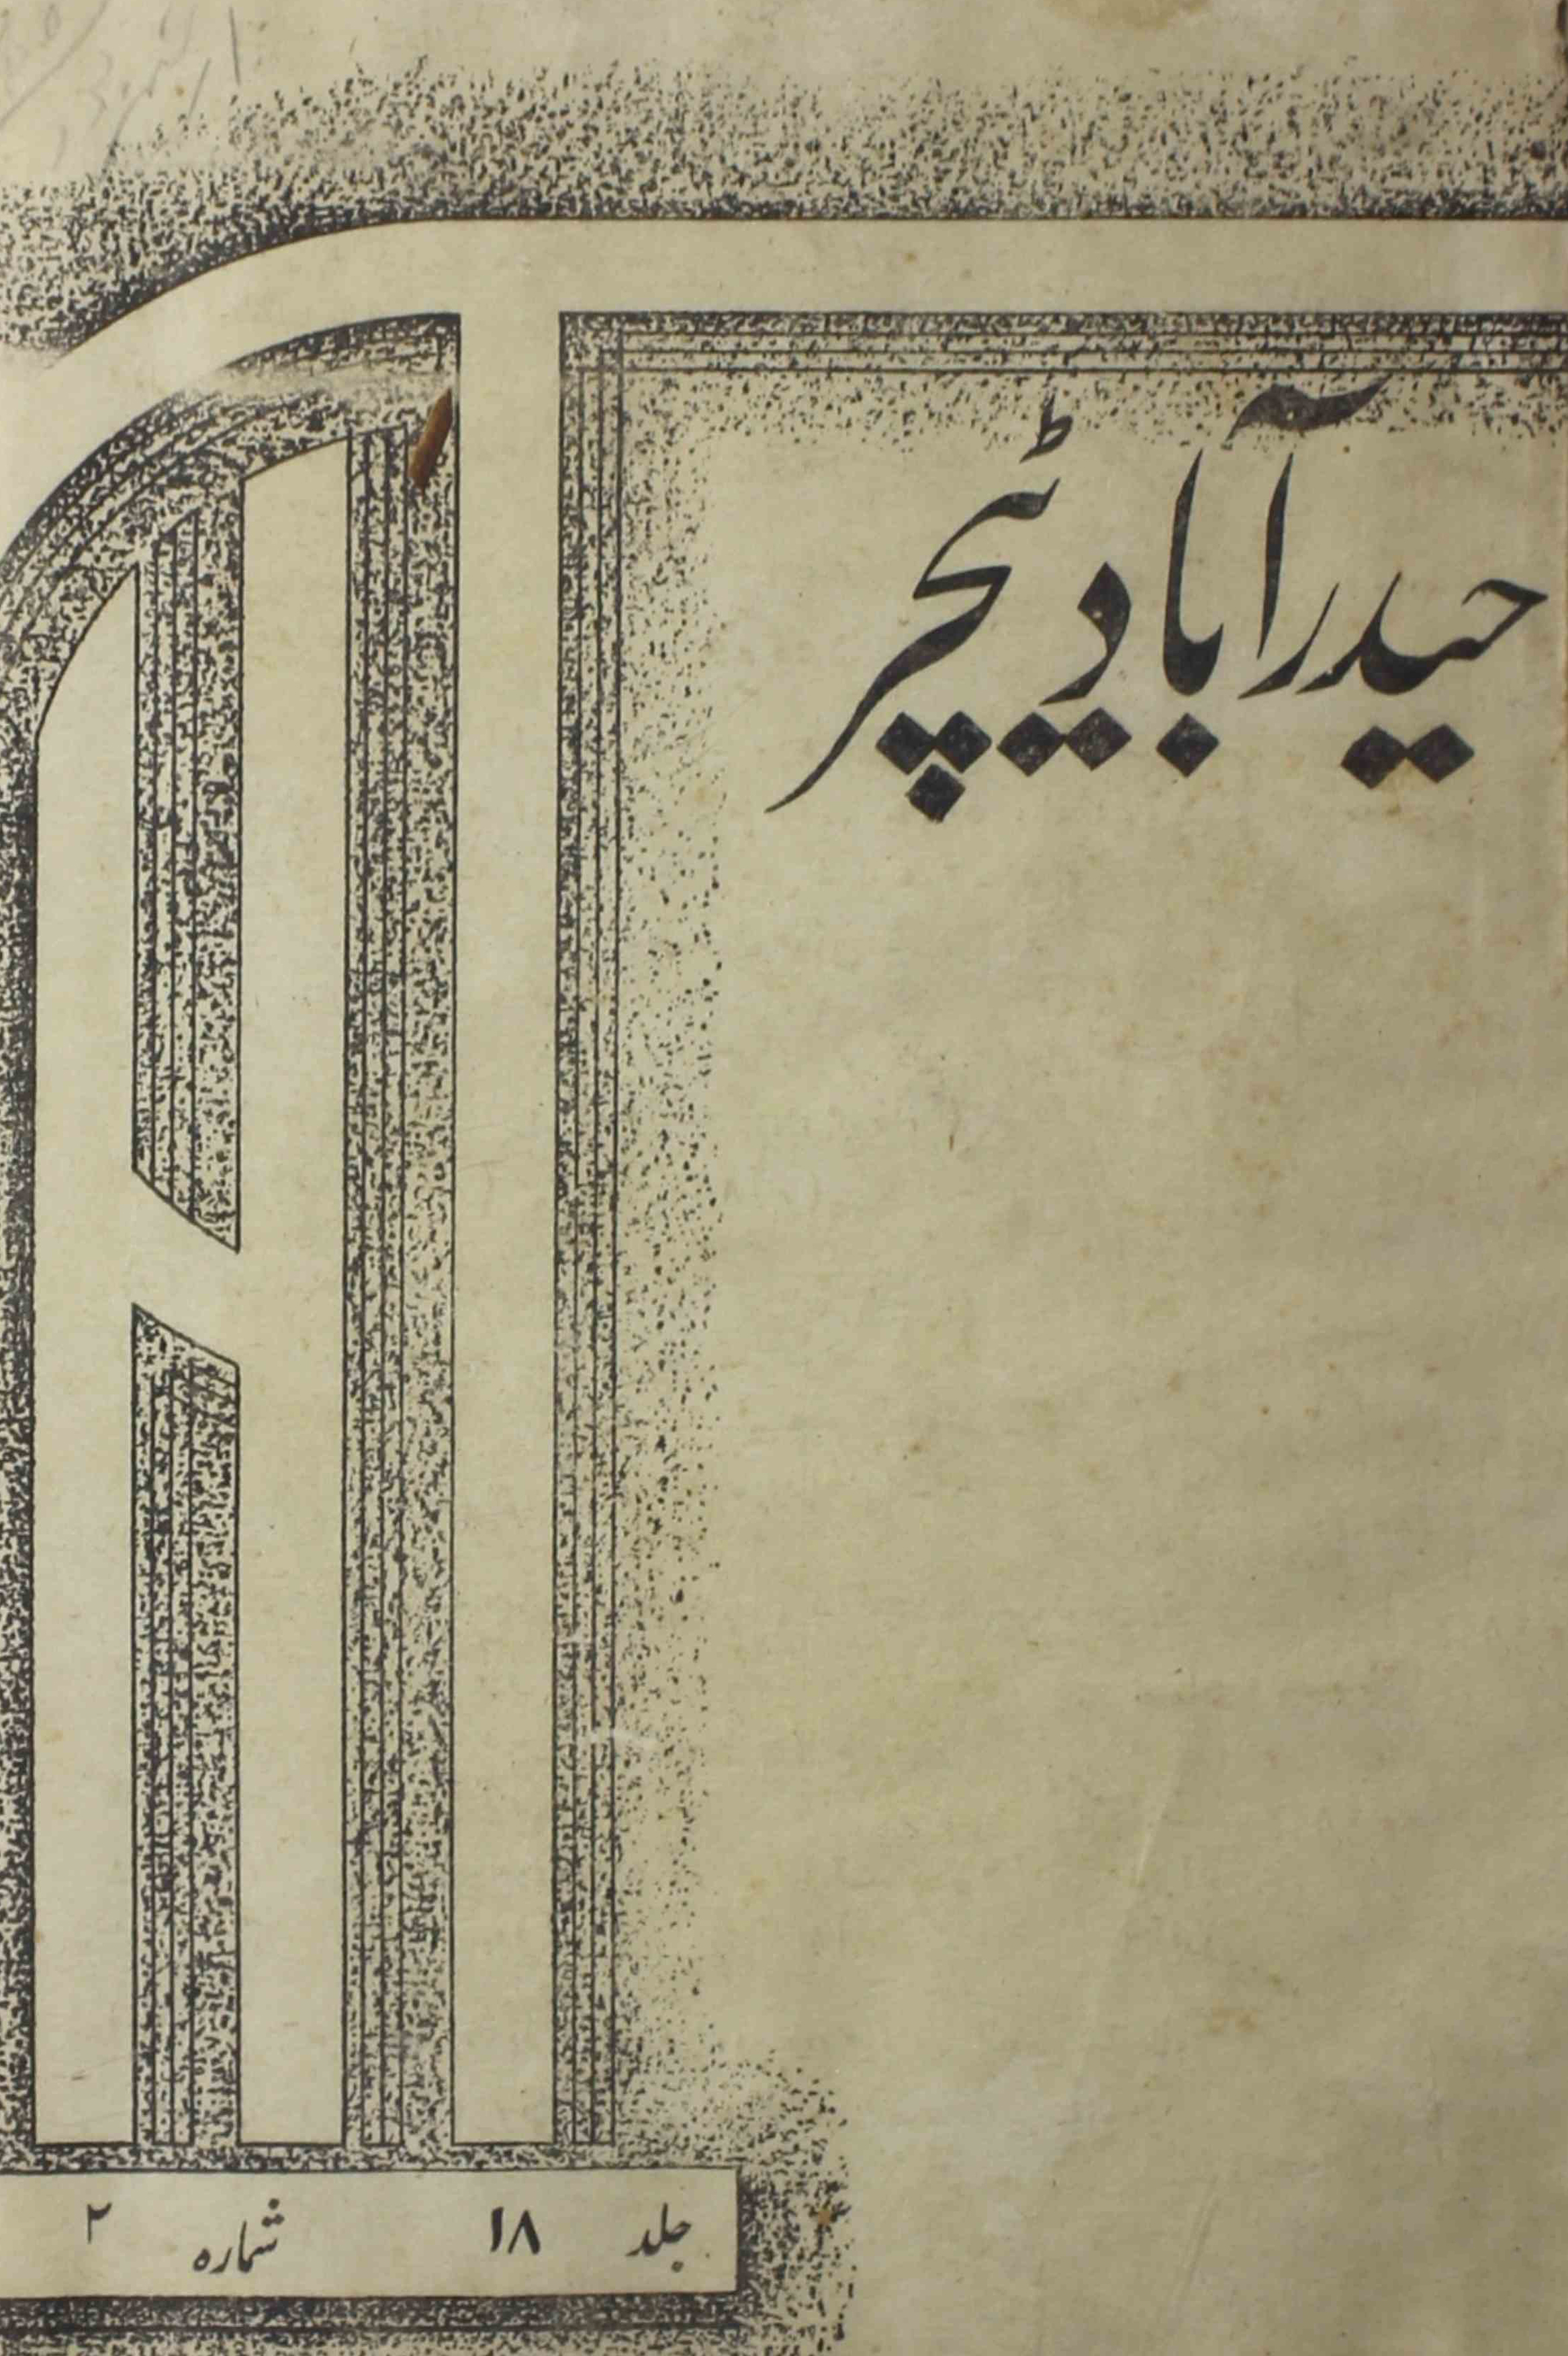 حیدرآباد ٹیچر
جلد ۱۸ شماره ۲